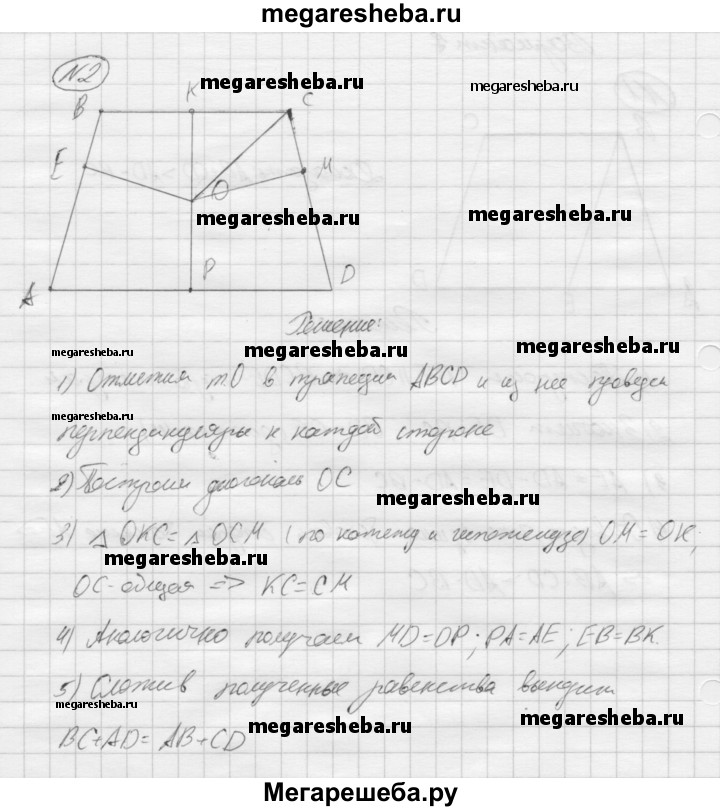 megaresheba.ru
№2
B K C
megaresheba.ru megaresheba.ru
E M
O
megaresheba.ru megaresheba.ru
A P D
Решение:
megaresheba.ru megaresheba.ru megaresheba.ru
1) Отметим т.О в трапеции ABCD и из нее проведем
megaresheba.ru
перпендикуляры к каждой стороне
2) Построим диагональ OC
megaresheba.ru
3) △ OKC = △ OCM (по катету и гипотенузе) OM = OK;
megaresheba.ru
OC-общая => KC=CM
4) Аналогично получаем MD=DP; PA=AE; EB=BK.
megaresheba.ru
5) Сложив полученные равенства выходит
megaresheba.ru megaresheba.ru megaresheba.ru
BC+AD= AB+CD
Мегарешеба.ру